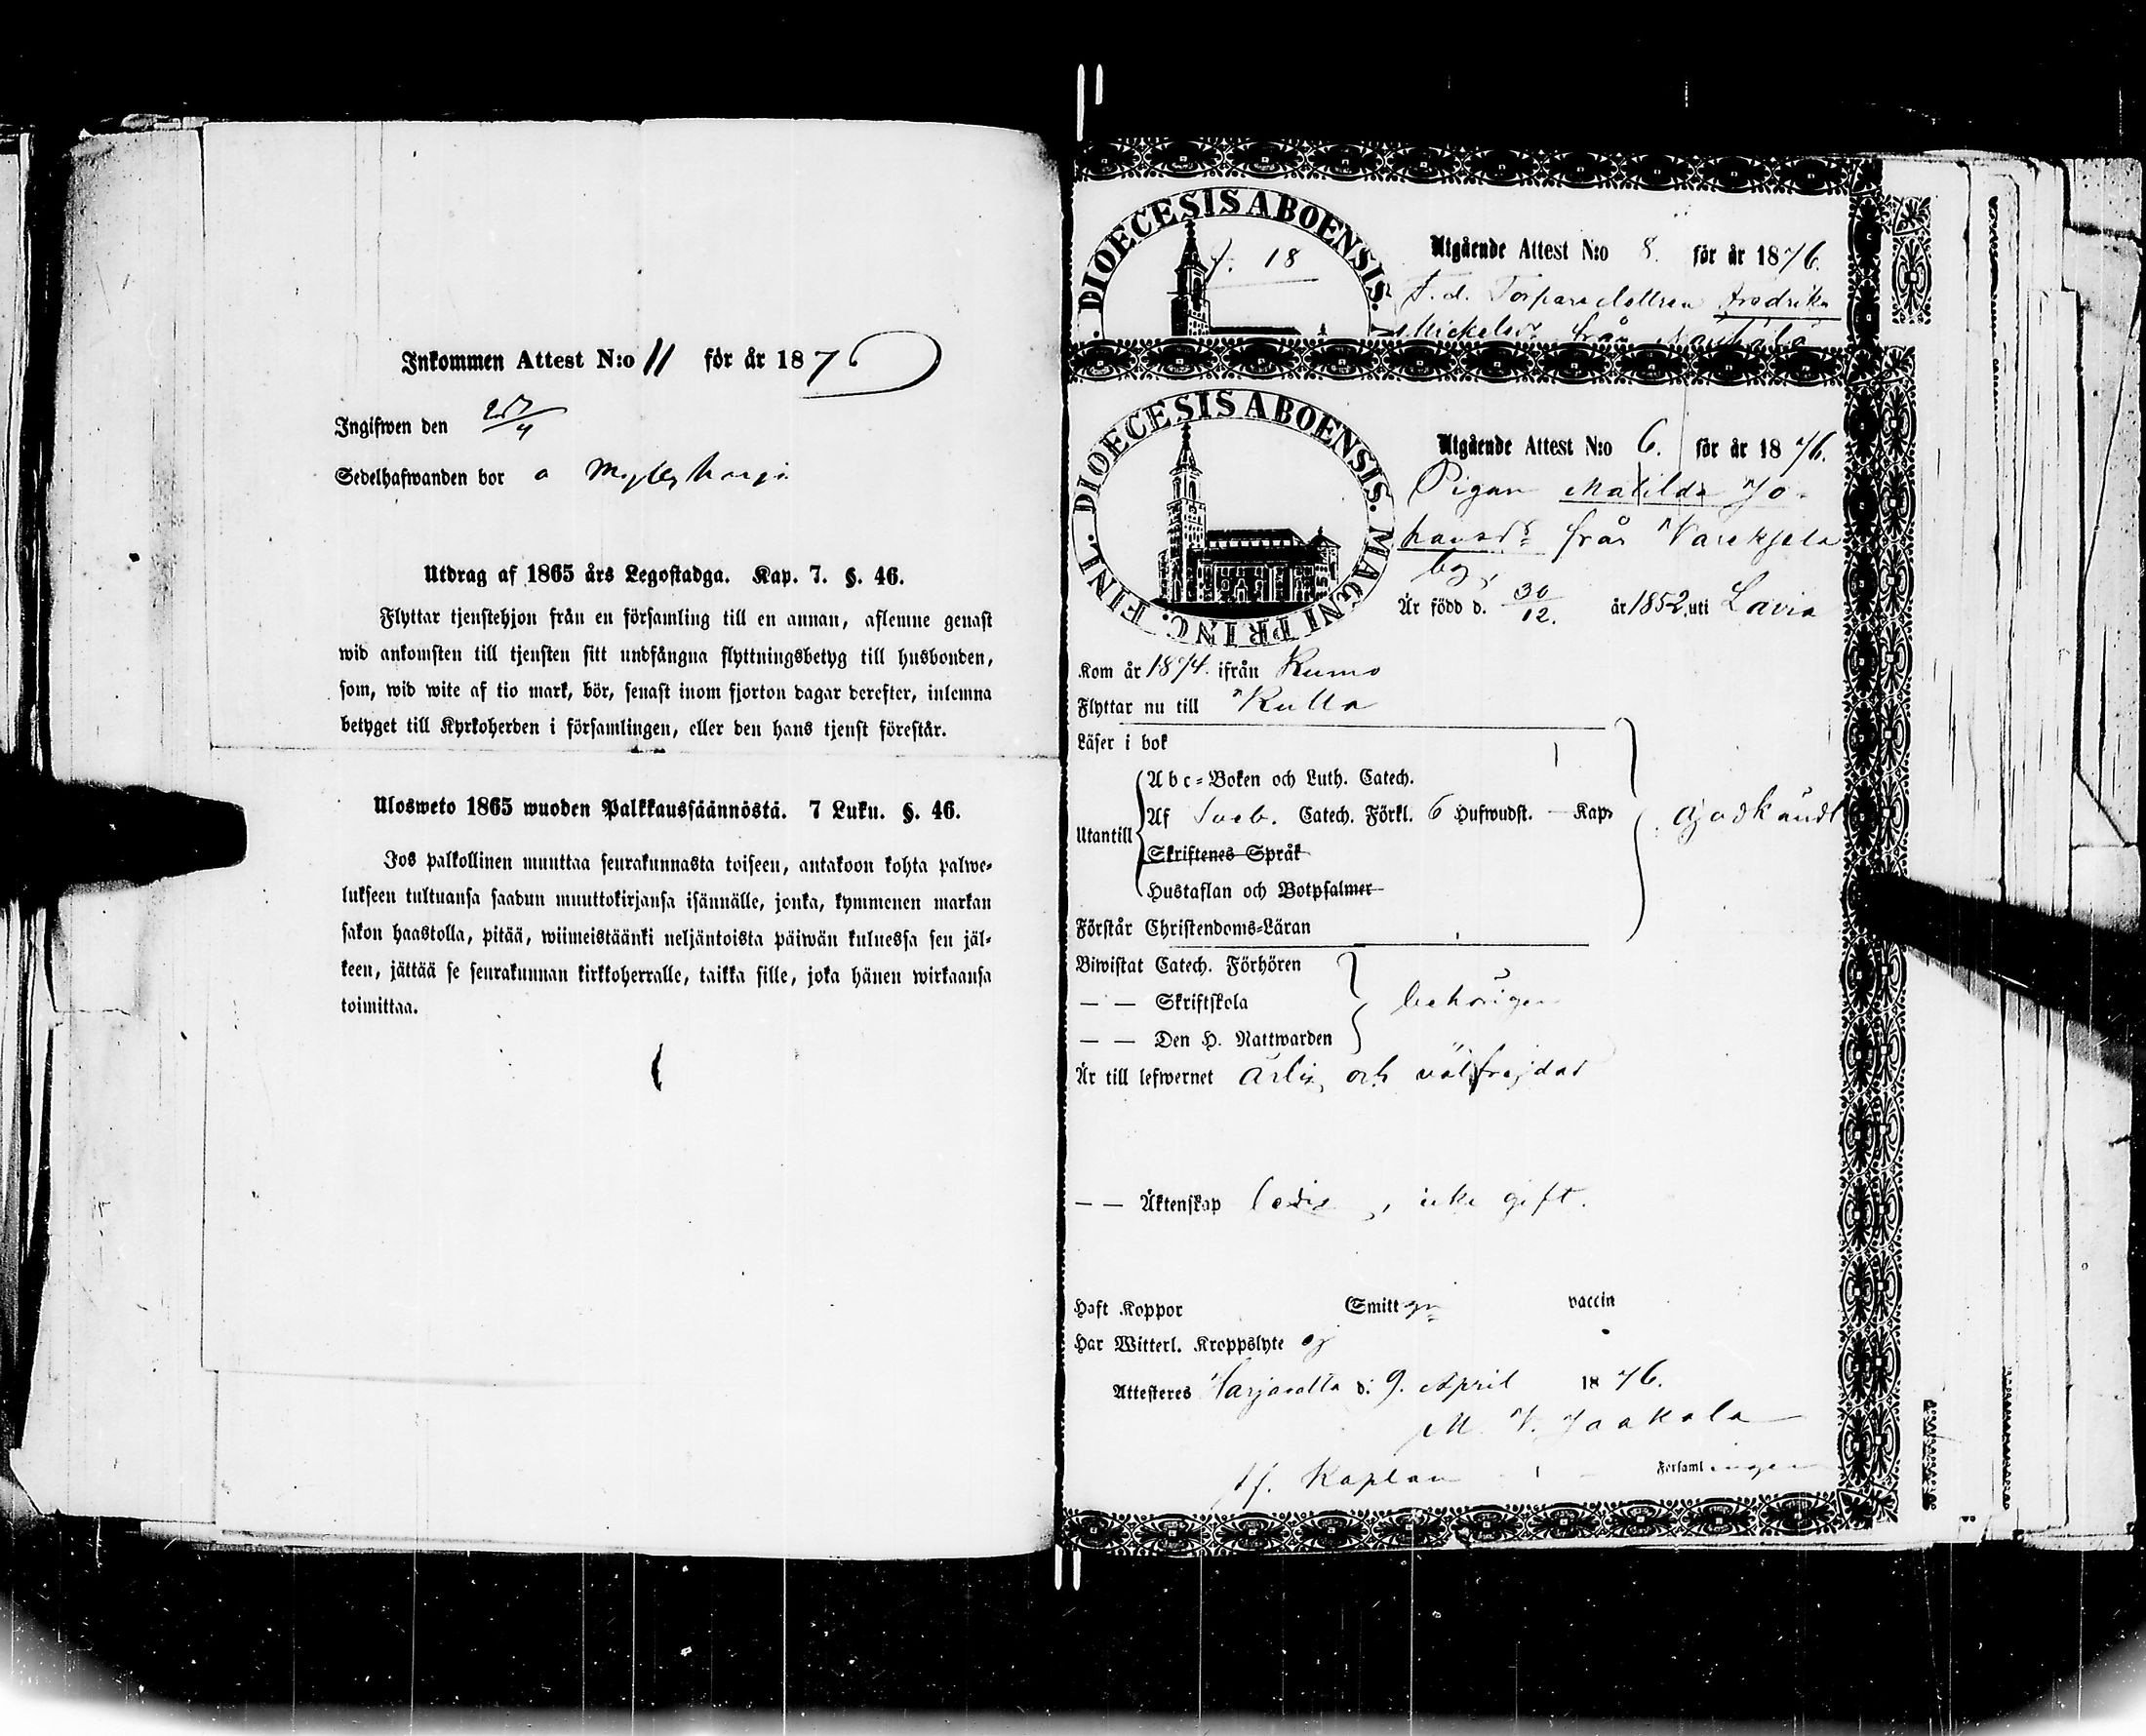 Inkommen Attest N:o 11 för år 1876
Ingifwen den 27/4
Sedelhafwanden bor å
Utdrag af 1865 års Legostadga. Kap. 7. §. 46.
Flyttar tjenstehjon från en församling till en annan, aflemne genast
wid ankomsten till tjensten sitt undfångna flyttningsbetyg till husbonden,
som, wid wite af tio mark, bör, senast inom fjorton dagar derefter, inlemna
betyget till Kyrkoherden i församlingen, eller den hans tjenst förestår.
Ulosweto 1865 wuoden Palkkaussäännöstä. 7 Luku. §. 46.
Jos palkollinen muuttaa seurakunnasta toiseen, antakoon kohta palwe-
lukseen tultuansa saadun muuttokirjansa isännälle, jonka, kymmenen markan
sakon haastolla, pitää, wiimeistäänki neljäntoista päiwän kuluessa sen jäl-
keen, jättää se seurakunnan kirkkoherralle, taikka sille, joka hänen wirkaansa
toimittaa.
DIOECESIS ABOENSIS.
18
Utgående Attest N:o 8. för år 1876.
F. d. Torpare dottren Fredrika
Mickelsdr från
DIOECESIS ABOENSIS. MAGNI PRINC. FINL.
Utgående Attest N:o 6. för år 1876.
Pigan Matilda Jo-
hansdr från
by,
Är född d. 30/12. år 1852, uti Lavia
Kom år 1874. ifrån Kumo
Flyttar nu till Kulla
Läser i bok
Utantill
Abc-Boken och Luth. Catech.
Af Sveb. Catech. Förkl. 6 Hufwudst. — Kap.
Skriftenes Språk
Hustaflan och Botpsalmer
Förstår Christendoms-Läran
godkändt
Biwistat Catech. Förhören
— — Skriftskola
— — Den H. Nattwarden
behörigen
Är till lefwernet ärlig och välfrejdad
— — Äktenskap ledig, icke gift.
Haft Koppor Smitt gn vaccin
Har Witterl. Kroppslyte ej
Attesteres Harjavalta d. 9. April 1876.
M. V. Jaakola
Kaplan Församlingen